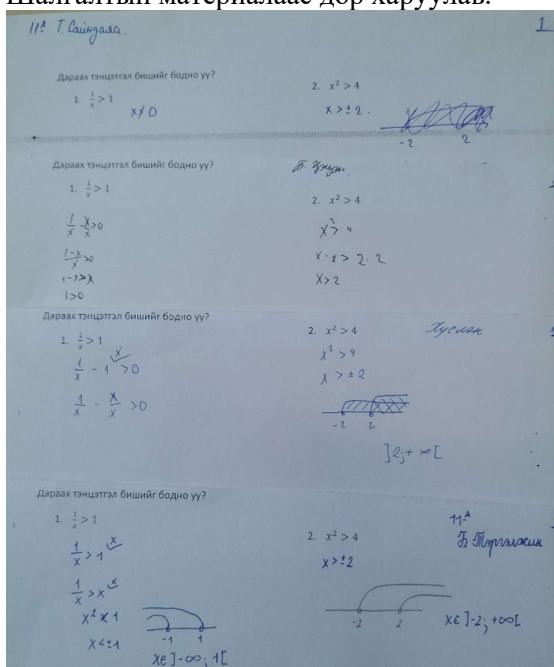 Шалгалтын материалаас дор харуулав.
11А Т. Сайндала. 1
Дараах тэнцэтгэл бишийг бодно уу?
1. 1/x > 1
x≠0
2. x² > 4
x > ±2.
-2 2
Дараах тэнцэтгэл бишийг бодно уу?
1. 1/x > 1
1/x - x/x > 0
(1-x)/x > 0
1-x>x
1>0
2. x² > 4
x² > 4
x·x > 2·2
x>2
Дараах тэнцэтгэл бишийг бодно уу?
Хуслэн
1. 1/x > 1
1/x - 1 > 0
1/x - x/x > 0
2. x² > 4
x² > 4
x > ±2
-2 2
]2;+∞[
Дараах тэнцэтгэл бишийг бодно уу?
11-А
1. 1/x > 1
1/x > 1
1/x > x
x² < 1
x < ±1
-1 1
x∈]-∞; 1[
2. x² > 4
x > ±2
-2 2
x∈]-2; +∞[